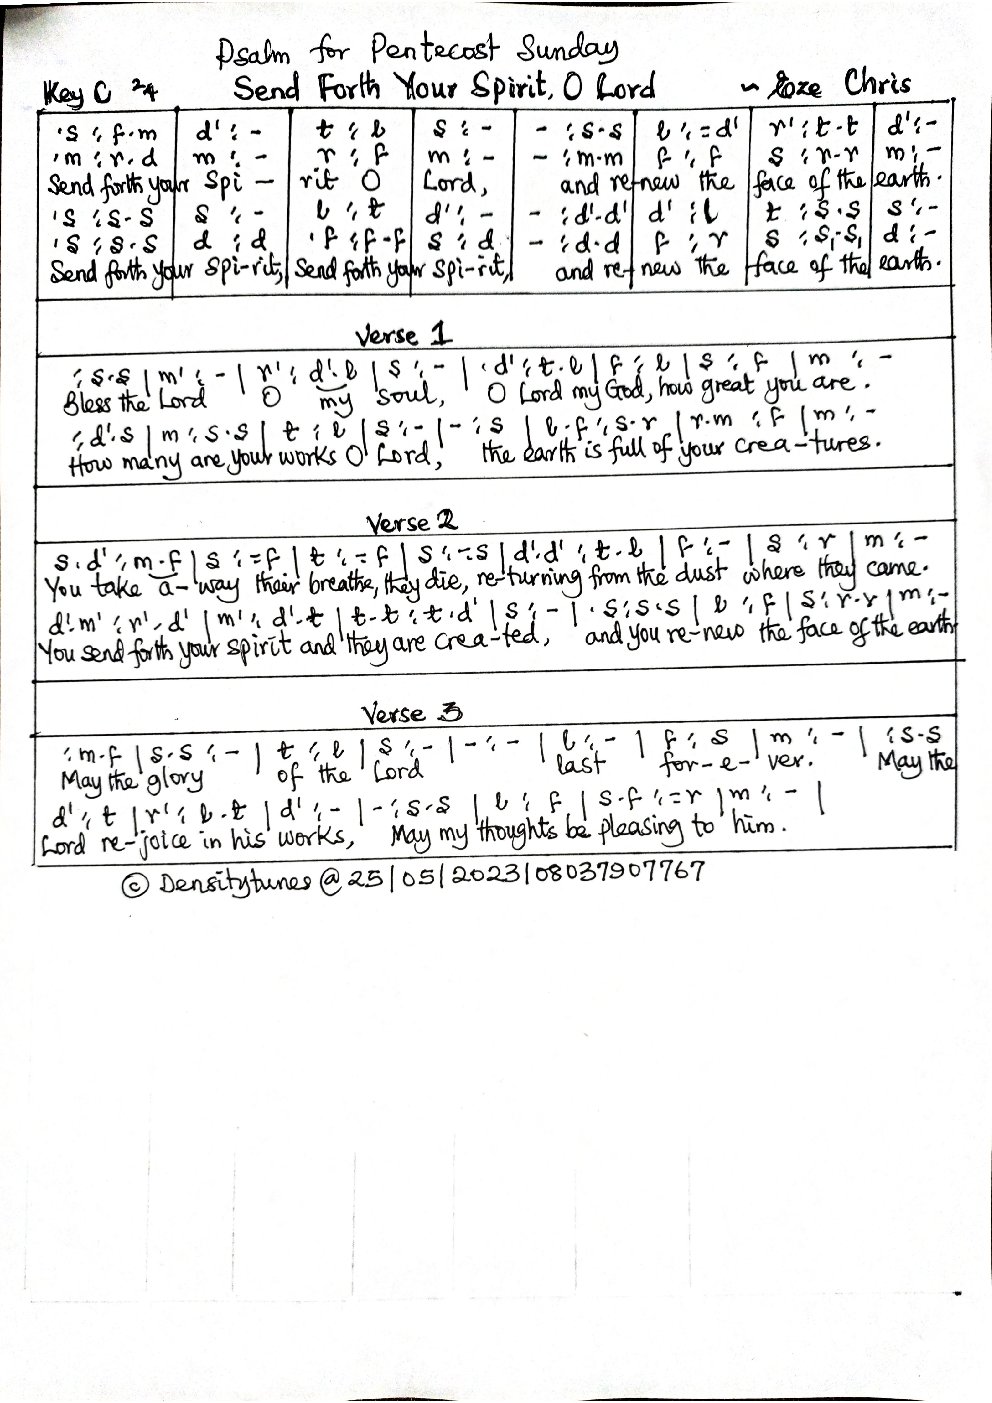 Psalm for Pentecost Sunday
Key C 2/4 Send Forth Your Spirit, O Lord ~ Eoze Chris
.s : f.m | d' : - | t : l | s : - | - : s.s | l : =d' | r' : t.t | d' : -
.m : r.d | m : - | r : f | m : - | - : m.m | f : f | s : r.r | m : -
Send forth your Spi - rit O Lord, and re-new the face of the earth.
.s : s.s | s : - | l : t | d' : - | - : d'.d' | d' : l | t : s.s | s : -
.s : s.s | d : d | .f : f.f | s : d | - : d.d | f : r | s : s,.s, | d : -
Send forth your Spi-rit, Send forth your Spi-rit, and re-new the face of the earth.
Verse 1
: s.s | m' : - | r' : d'.l | s : - | . d' : t.l | f : l | s : f | m : -
Bless the Lord O my Soul, O Lord my God, how great you are.
: d'.s | m : s.s | t : l | s : - | - : s | l.f : s.r | r.m : f | m : -
How many are your works O Lord, the earth is full of your crea-tures.
Verse 2
s.d' : m.f | s : =f | t : =f | s : -.s | d'.d' : t.l | f : - | s : r | m : -
You take a-way their breathe, they die, re-turning from the dust where they came.
d'.m' : r'.d' | m' : d'.t | t.t : t.d' | s : - | . s : s.s | l : f | s : r.r | m : -
You send forth your spirit and they are crea-ted, and you re-new the face of the earth
Verse 3
: m.f | s.s : - | t : l | s : - | - : - | l : - | f : s | m : - | : s.s
May the glory of the Lord last for-e-ver. May the
d' : t | r' : l.t | d' : - | - : s.s | l : f | s.f : =r | m : - |
Lord re-joice in his works, May my thoughts be pleasing to him.
© Densitytunes @ 25/05/2023/08037907767